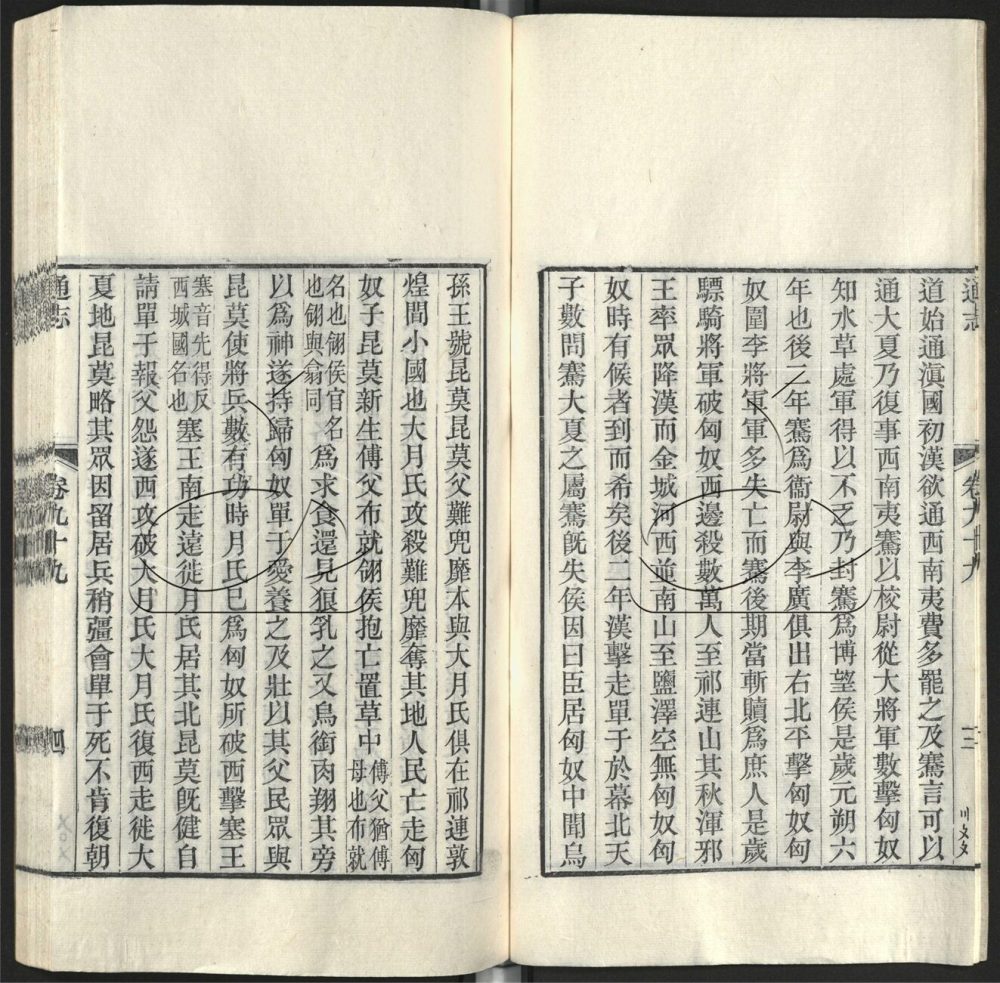 通志
卷九十九
三
道始通滇國初漢欲通西南夷費多罷之及騫言可以
通大夏乃復事西南夷騫以校尉從大將軍數擊匈奴
知水草處軍得以不乏乃封騫爲博望侯是歲元朔六
年也後二年騫爲衞尉與李廣俱出右北平擊匈奴匈
奴圍李將軍軍多失亡而騫後期當斬贖爲庶人是歲
驃騎將軍破匈奴西邊殺數萬人至祁連山其秋渾邪
王率眾降漢而金城河西並南山至鹽澤空無匈奴匈
奴時有候者到而希矣後二年漢擊走單于於幕北天
子數問騫大夏之屬騫旣失侯因曰臣居匈奴中聞烏
孫王號昆莫昆莫父難兜靡本與大月氏俱在祁連敦
煌間小國也大月氏攻殺難兜靡奪其地人民亡走匈
奴子昆莫新生傅父布就翎侯抱亡置草中傅父猶傅母也布就
名也翎侯官名也翎與翕同爲求食還見狼乳之又烏銜肉翔其旁
以爲神遂持歸匈奴單于愛養之及壯以其父民眾與
昆莫使將兵數有功時月氏已爲匈奴所破西擊塞王
塞音先得反西城國名也塞王南走遠徙月氏居其北昆莫旣健自
請單于報父怨遂西攻破大月氏大月氏復西走徙大
夏地昆莫略其眾因留居兵稍彊會單于死不肯復朝
通志
卷九十九
四